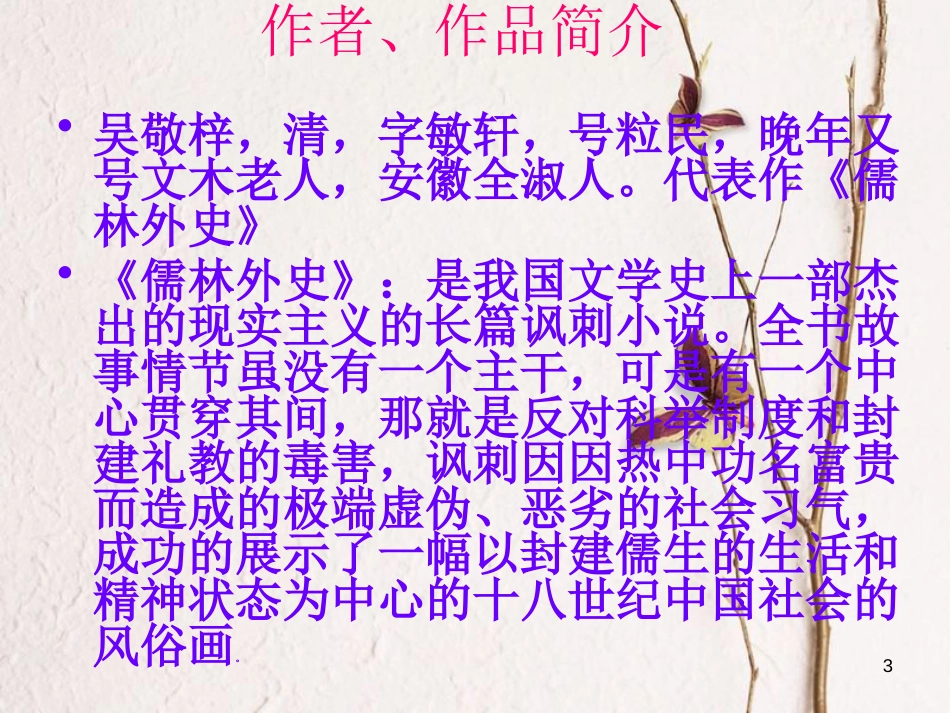 作者、作品简介
• 吴敬梓，清，字敏轩，号粒民，晚年又
号文木老人，安徽全淑人。代表作《儒
林外史》
• 《儒林外史》：是我国文学史上一部杰
出的现实主义的长篇讽刺小说。全书故
事情节虽没有一个主干，可是有一个中
心贯穿其间，那就是反对科举制度和封
建礼教的毒害，讽刺因因热中功名富贵
而造成的极端虚伪、恶劣的社会习气，
成功的展示了一幅以封建儒生的生活和
精神状态为中心的十八世纪中国社会的
风俗画.
3